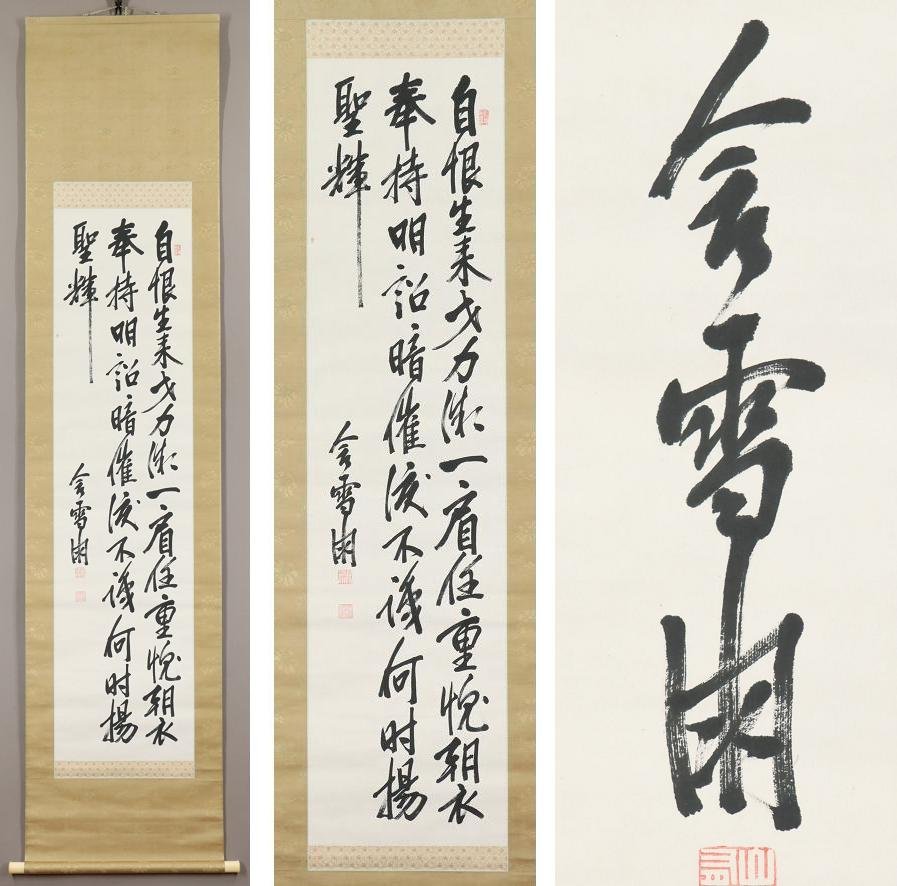 自恨生来才力微一肩任重愧朝衣
奉持明詔暗催涙不識何时揚
聖輝
含雪朋
自恨生来才力微一肩任重愧朝衣
奉持明詔暗催涙不識何时揚
聖輝
含雪朋
含雪朋